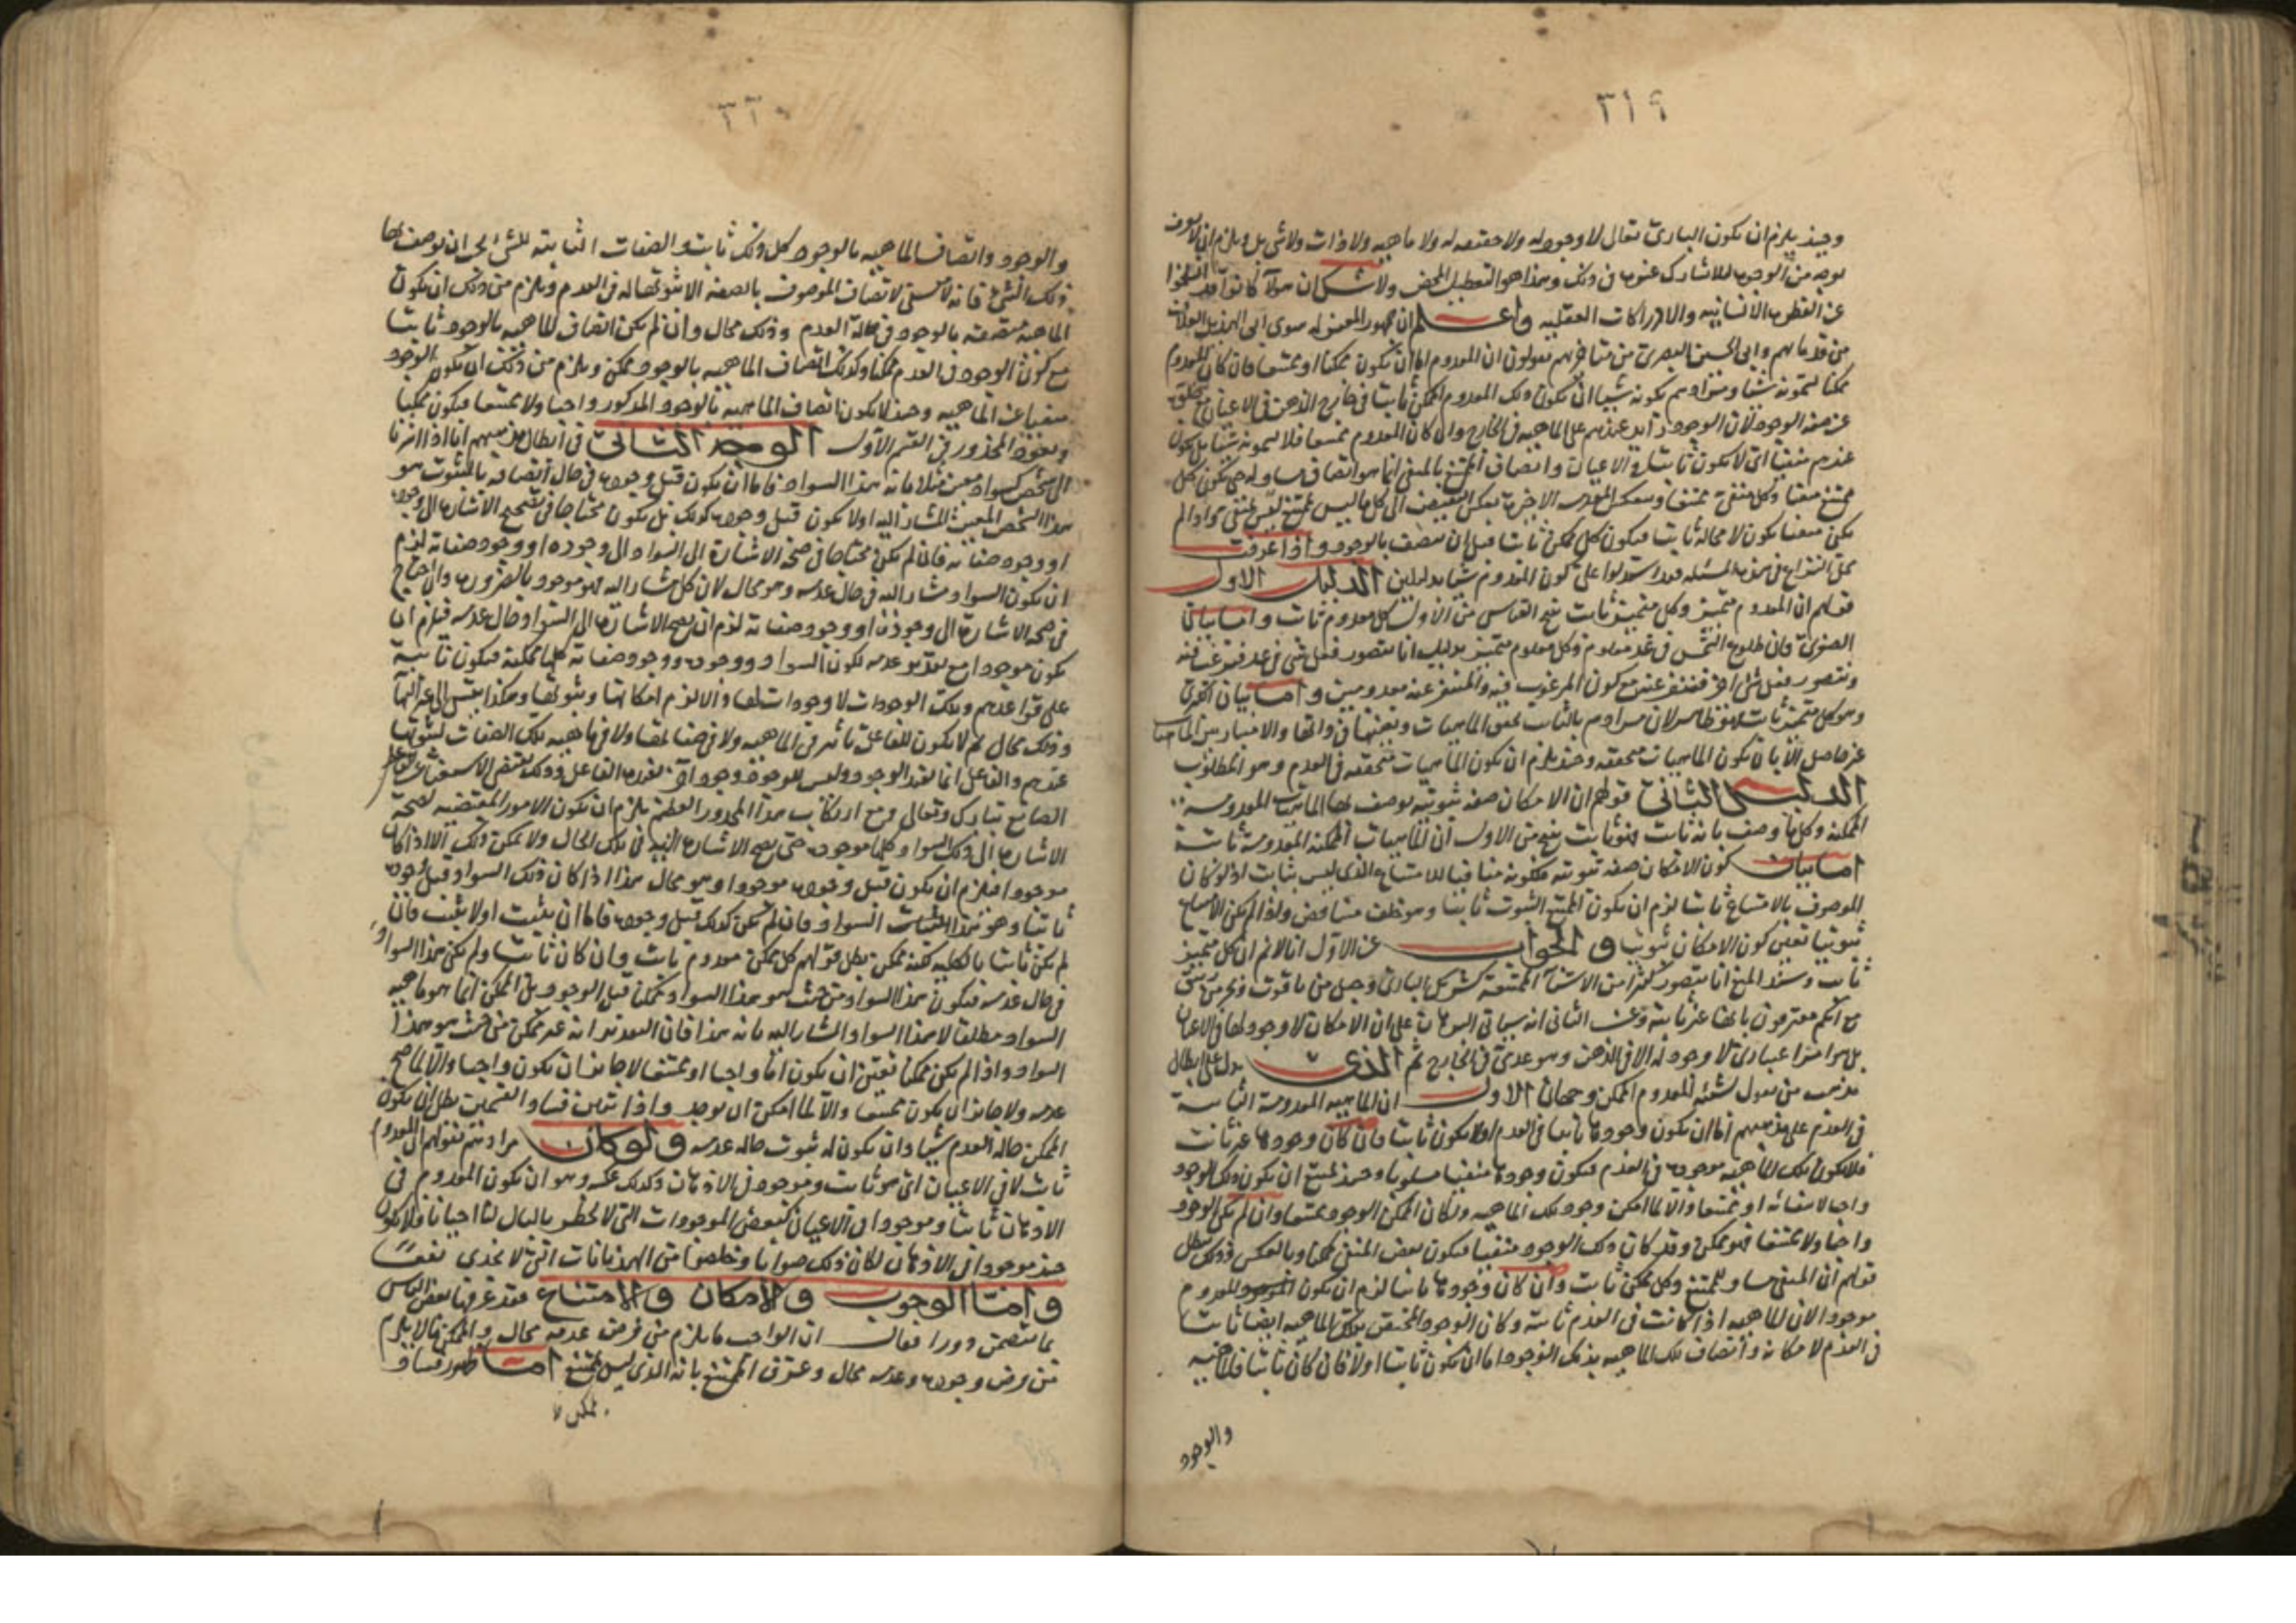 ٣١٩
وحينئذ يلزم ان يكون البارى تعالى لا وجود له ولا حقيقه له ولا ماهيه ولا ذات ولا شى بل ويلزم ان لا يوصف
بوجه من الوجوه للاشارك غيره فى ذلك وهذا هو التعطيل المحض ولا شك ان هولآ كانوا قد انسلخوا
عن الفطره الانسانيه والادراكات العقليه واعلم ان جمهور المعتزله سوى ابى الهذيل العلاف
من قدمايهم وابى الحسين البصرى من متاخريهم يقولون ان المعدوم اما ان يكون ممكنا او ممتنعا فان كان المعدوم
ممكنا يسمونه شيا ومرادهم بكونه شيا ان يكون ذلك المعدوم الممكن ثابتا فى خارج الذهن فى الاعيان
عن صفه الوجود لان الوجود زايد عندهم على الماهيه فى الخارج وان كان المعدوم ممتنعا فلا يسمونه شيا بل يكون
عندهم منفيا اى لا يكون ثابتا فى الاعيان واتصاف الممتنع بالمنفى انما هو اتصاف مساو له حتى يكون كل
ممتنع منفيا وكل منفى ممتنعا وينعكس المقدمه الاخيره بعكس النقيض الى كل ما ليس بممتنع ليس بمنفى واذا لم
يكن منفيا يكون لا محاله ثابتا فيكون كل ممكن ثابتا قبل ان يتصف بالوجود واذا عرفت
محل النزاع فى هذه المسئله فقد استدلوا على كون المعدوم شيا بدليلين الدليل الاول
قولهم ان المعدوم متميز وكل متميز ثابت ينتج القياس من الاول كل معدوم ثابت واما بيان
الصغرى فان طلوع الشمس فى غد معلوم وكل معلوم متميز بدليل انا نتصور قبل شى فى غد فنرغب فيه
ونتصور قبل شى اخر فننفر عنه مع كون المرغوب فيه والمتنفر عنه معدومين واما بيان الكبرى
وهو كل متميز ثابت فهو ظاهر لان مرادهم بالثابت تحقق الماهيات وتعينها فى ذاتها والامتياز من الماهيات
غير حاصل الا بان يكون الماهيات متحققه وحينئذ يلزم ان يكون الماهيات متحققه فى العدم وهو المطلوب
الدليل الثانى قولهم ان الامكان صفه ثبوتيه يوصف بها الماهيات المعدومه
الممكنه وكل ما وصف بانه ثابت فهو ثابت ينتج من الاول ان الماهيات الممكنه المعدومه ثابته
اما بيان كون الامكان صفه ثبوتيه فلكونه منافيا للامتناع الذى ليس بثابت اذ لو كان
الموصوف بالامتناع ثابتا لزم ان يكون الممتنع الثبوت ثابتا وهو خلف متناقض ولما لم يكن الامتناع
ثبوتيا تعين كون الامكان ثبوتيا والجواب عن الاول انا لا نم ان كل متميز
ثابت وسند المنع انا نتصور كثيرا من الاشيآ الممتنعه كشريك البارى وجبل من ياقوت وبحر من زيبق
مع انكم معترفون بانها غير ثابته وعن الثانى انه سياتى البرهان على ان الامكان لا وجود لها فى الاعيان
بل هو امر اعتبارى لا وجود له الا فى الذهن وهو عدمى فى الخارج ثم الذى يدل على ابطال
مذهب من يقول بشئيه المعدوم الممكن وجهان الاول ان الماهيه المعدومه الثابته
فى العدم على مذهبهم اما ان يكون وجودها ثابتا فى العدم او لا يكون ثابتا فان كان وجودها غير ثابت
فلا يكون تلك الماهيه موجوده فى العدم فيكون وجودها منفيا مسلوبا وحينئذ يمتنع ان يكون ذلك الوجود
واجبا لانتفائه او ممتنعا والا لما امكن وجود تلك الماهيه ولكان الممكن الوجود ممتنعا وان لم يكن الوجود
واجبا ولا ممتنعا فهو ممكن وقد كان ذلك الوجود منفيا فيكون بعض المنفى ممكنا وبالعكس وذلك يبطل
قولهم ان المنفى مساو للممتنع وكل ممكن ثابت وان كان وجودها ثابتا لزم ان يكون المعدوم
موجودا لان الماهيه اذا كانت فى العدم ثابته وكان الوجود المختص بتلك الماهيه ايضا ثابتا
فى العدم لامكانه واتصاف تلك الماهيه بذلك الوجود اما ان يكون ثابتا اولا فان كان ثابتا فالماهيه
والوجود
٣٢٠
والوجود واتصاف الماهيه بالوجود كل ذلك ثابت والصفات الثابته للشى يجب ان يوصف بها
ذلك الشئ فانه لا معنى لاتصاف الموصوف بالصفه الا ثبوتها له فى العدم ويلزم من ذلك ان يكون
الماهيه متصفه بالوجود فى حاله العدم وذلك محال وان لم يكن اتصاف الماهيه بالوجود ثابتا
مع كون الوجود فى العدم ممكنا وكذلك اتصاف الماهيه بالوجود ممكن ويلزم من ذلك ان يكون الوجود
منفيا عن الماهيه وحينئذ لا يكون اتصاف الماهيه بالوجود المذكور واجبا ولا ممتنعا فيكون ممكنا
ويعود المحذور فى القسم الاول الوجه الثانى فى ابطال مذهبهم انا اذا اشرنا
الى شخص كسواد معين مثلا بانه هذا السواد فاما ان يكون قبل وجوده فى حال اتصافه بالثبوت هو
هذا الشخص المعين المشار اليه اولا يكون قبل وجوده كذلك بل يكون محتاجا فى تصحيح الاشاره الى وجوده
او وجود صفاته فان لم يكن محتاجا فى صحه الاشارة الى السواد الى وجوده او وجود صفاته لزم
ان يكون السواد مشارا اليه فى حال عدمه وهو محال لان كل مشار اليه فهو موجود بالضروره وان احتاج
فى صحه الاشاره الى وجوده او وجود صفاته لزم ان يصح الاشاره الى السواد حال عدمه فيلزم ان
يكون موجودا مع عدمه لكون السواد ووجوده ووجود صفاته كلها ممكنه فيكون ثابته
على قواعدهم وتلك الوجودات لا وجودات لها والا لزم امكانها وثبوتها وهكذا يتسلسل الى غير النهايه
وذلك محال ثم لا يكون للفاعل تاثير فى الماهيه ولا فى صفاتها ولا فى ماهيه تلك الصفات لثبوتها
عندهم والفاعل انما يفيد الوجود وليس للوجود وجود اخر يفيده الفاعل وذلك يقتضى الاستغناء عن
الصانع تبارك وتعالى ومع ارتكاب هذا المحذور العظيم يلزم ان يكون الامور المقتضيه لصحة
الاشاره الى ذلك السواد كلها موجوده حتى يصح الاشاره اليه فى تلك الحال ولا يمكن ذلك الا اذا كان
موجودا فيلزم ان يكون قبل وجوده موجودا وهو محال هذا اذا كان ذلك السواد قبل وجوده
ثابتا وهو هذا السواد فان لم يكن كذلك قبل وجوده فاما ان يثبت اولا يثبت فان
لم يكن ثابتا بالكليه لكنه ممكن بطل قولهم كل ممكن معدوم ثابت وان كان ثابتا ولم يكن هذا السواد
فى حال عدمه فيكون هذا السواد من حيث هو هذا السواد ممكنا قبل الوجود بل الممكن انما هو ماهيه
السواد مطلقا لا هذا السواد المشار اليه بانه هذا فان التقدير انه غير ممكن من حيث هو هذا
السواد واذا لم يكن ممكنا تعين ان يكون اما واجبا او ممتنعا لا جايز ان يكون واجبا والا لما صح
عدمه ولا جايز ان يكون ممتنعا والا لما امكن ان يوجد واذا تبين فساد القسمين بطل ان يكون
الممكن حاله العدم شيا وان يكون له ثبوت حاله عدمه ولو كان مرادهم بقولهم ان المعدوم
ثابت لا فى الاعيان اى هو ثابت وموجود فى الاذهان وكذلك عكسه وهو ان يكون المعدوم فى
الاذهان ثابتا وموجودا فى الاعيان كبعض الموجودات التى لا تخطر بالبال لنا احيانا فلا يكون
حينئذ موجودا فى الاذهان لكان ذلك صوابا وخلصوا من الهذيانات التى لا تجدى نفعا
واما الوجوب والامكان والامتناع فقد عرفها بعض الناس
بما يتضمن دورا فقال ان الواجب ما يلزم من فرض عدمه محال والممكن ما لا يلزم
من فرض وجوده وعدمه محال وعرف الممتنع بانه الذى ليس بممكن اما ظهور فساد
ممكن